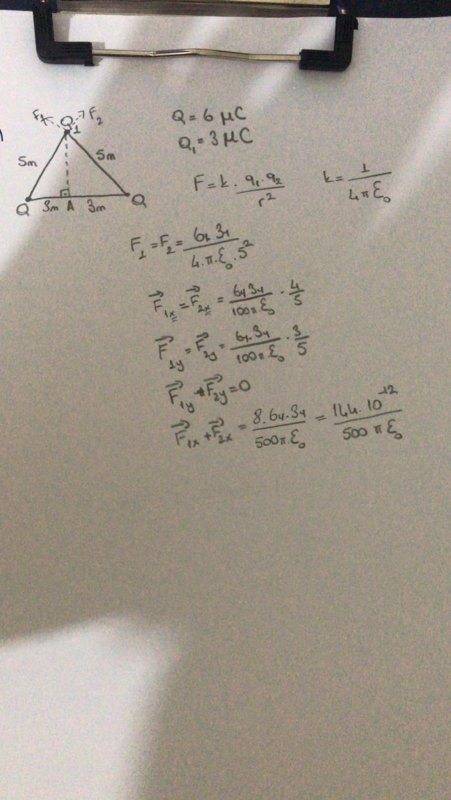 F₁ Q₁ F₂
5m 5m
Q 3m A 3m Q
Q = 6 μC
Q₁ = 3 μC
F = k · q₁·q₂ / r² k = 1 / 4πε₀
F₁ = F₂ = 6μ 3μ / 4·π·ε₀·5²
F⃗₁ₓ = F⃗₂ₓ = 6μ 3μ / 100πε₀ · 4/5
F⃗₁y = F⃗₂y = 6μ·3μ / 100πε₀ · 3/5
F⃗₁y + F⃗₂y = 0
F⃗₁ₓ + F⃗₂ₓ = 8·6μ·3μ / 500πε₀ = 144·10⁻¹² / 500 π ε₀